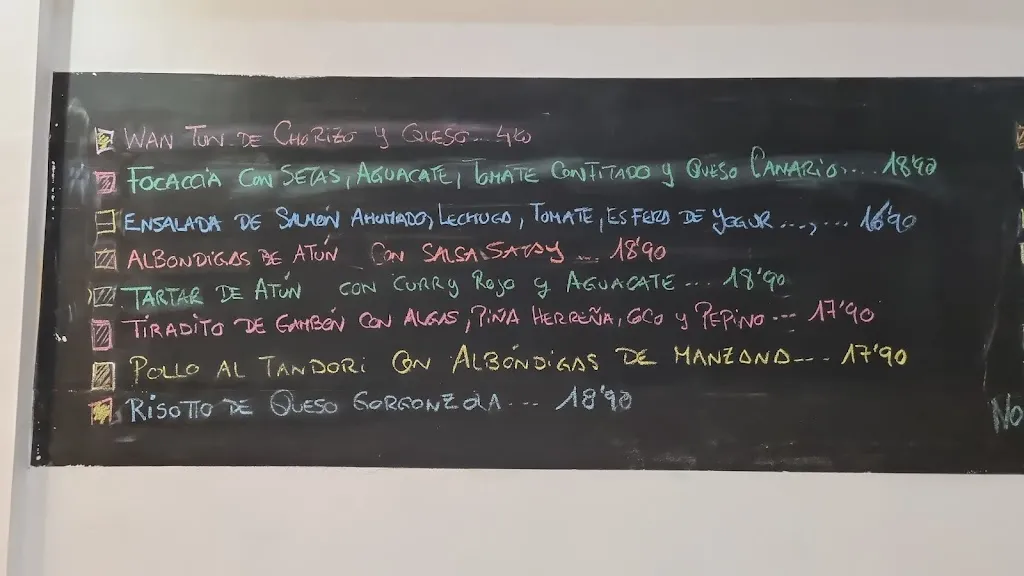 WAN TUN DE CHORIZO Y QUESO... 4'90
FOCACCIA CON SETAS, AGUACATE, TOMATE CONFITADO Y QUESO CANARIO.... 18'90
ENSALADA DE SALMÓN AHUMADO, LECHUGA, TOMATE, ESFERA DE YOGUR ...,... 16'90
ALBONDIGAS DE ATÚN CON SALSA SATAY ... 18'90
TARTAR DE ATÚN CON CURRY ROJO Y AGUACATE ... 18'90
TIRADITO DE GAMBÓN CON ALGAS, PIÑA HERREÑA, COCO Y PEPINO --- 17'90
POLLO AL TANDORI CON ALBÓNDIGAS DE MANZANA --- 17'90
RISOTTO DE QUESO GORGONZOLA --- 18'90
No